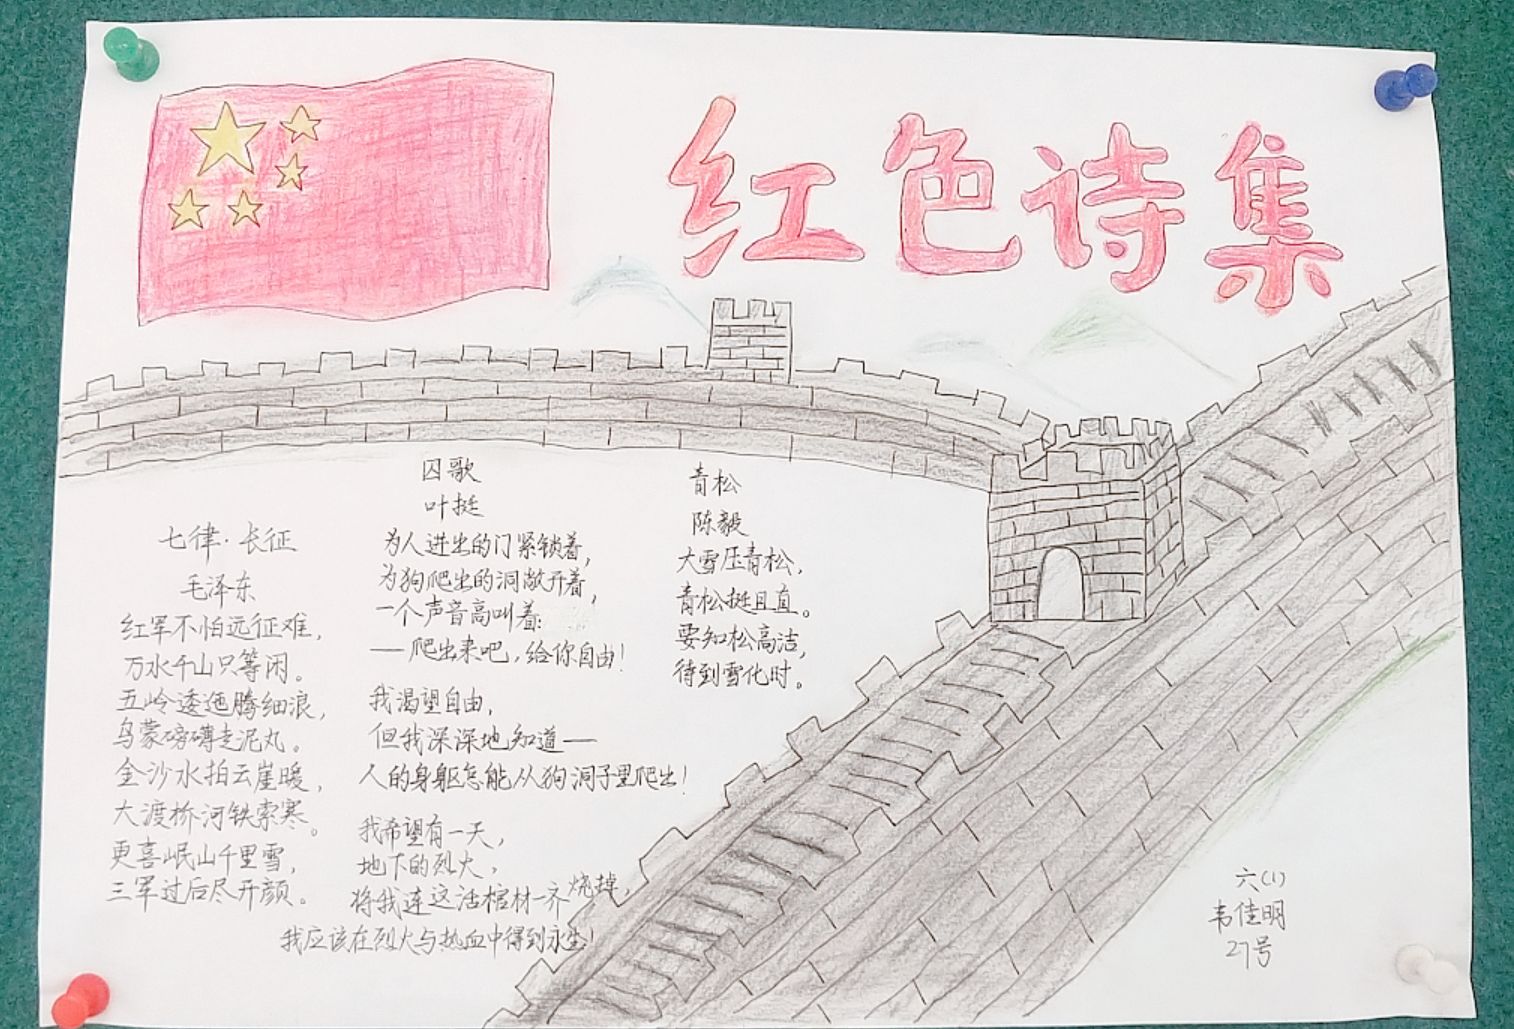 红色诗集
七律·长征
毛泽东
红军不怕远征难，
万水千山只等闲。
五岭逶迤腾细浪，
乌蒙磅礴走泥丸。
金沙水拍云崖暖，
大渡桥河铁索寒。
更喜岷山千里雪，
三军过后尽开颜。
囚歌
叶挺
为人进出的门紧锁着，
为狗爬出的洞敞开着，
一个声音高叫着：
——爬出来吧，给你自由！
我渴望自由，
但我深深地知道——
人的身躯怎能从狗洞子里爬出！
我希望有一天，
地下的烈火，
将我连这活棺材一齐烧掉，
我应该在烈火与热血中得到永生！
青松
陈毅
大雪压青松，
青松挺且直。
要知松高洁，
待到雪化时。
六（1）
韦佳明
27号